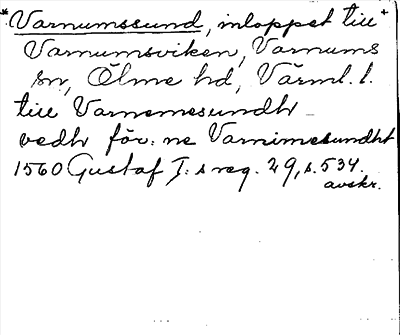 *Varnumssund, inloppet till+
Varnumsviken, Varnums
sn, Ölme hd, Värml. l.
till Varnemesundh –
vedh för: ne Varnimesundht
1560 Gustaf I: s reg. 29, s. 534.
avskr.